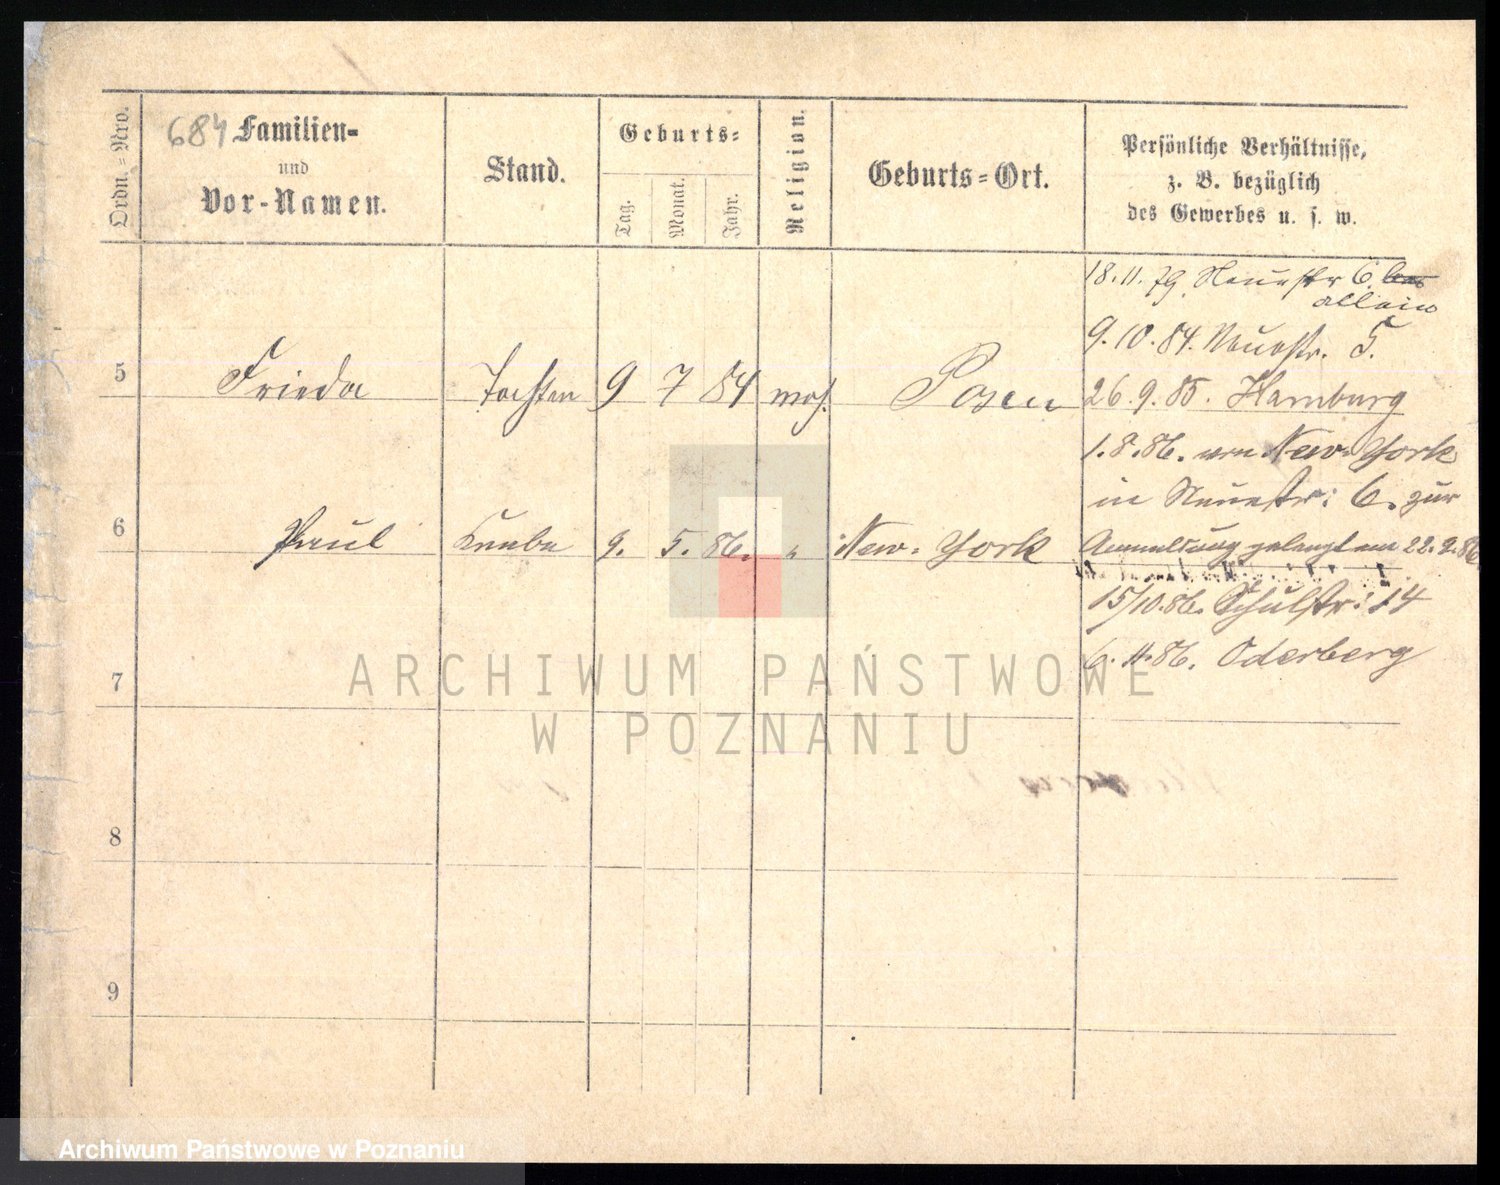 684 Familien=
und
Vor-Namen.
Ordn.=Nro.
Stand.
Geburts=
Tag.
Monat.
Jahr.
Religion.
Geburts=Ort.
Persönliche Verhältnisse,
z. B. bezüglich
des Gewerbes u. s. w.
18.11.79. Neuestr 6.
allein
9.10.84. Neuestr. 5.
5 Frieda Tochter 9 7 84 mos. Posen 26.9.85. Hamburg
1.8.86. von New-York
in Neuestr: 6. zur
6 Paul Knabe 9. 5. 86. " New-York Anmeldung gelangt am 22.9.86
15/10.86. Schulstr: 14
6.11.86. Oderberg
7
8
9
ARCHIWUM PAŃSTWOWE
W POZNANIU
Archiwum Państwowe w Poznaniu